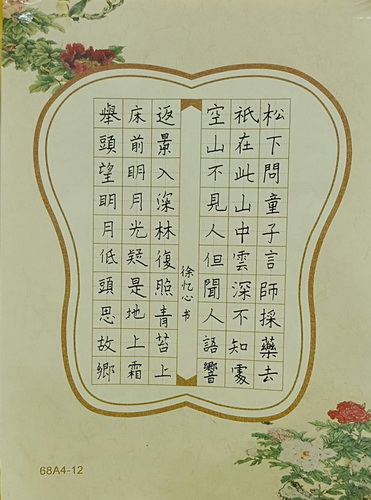 松下問童子言師採藥去
祇在此山中雲深不知處
空山不見人但聞人語響
徐忆心书
返景入深林復照青苔上
床前明月光疑是地上霜
舉頭望明月低頭思故鄉
68A4-12